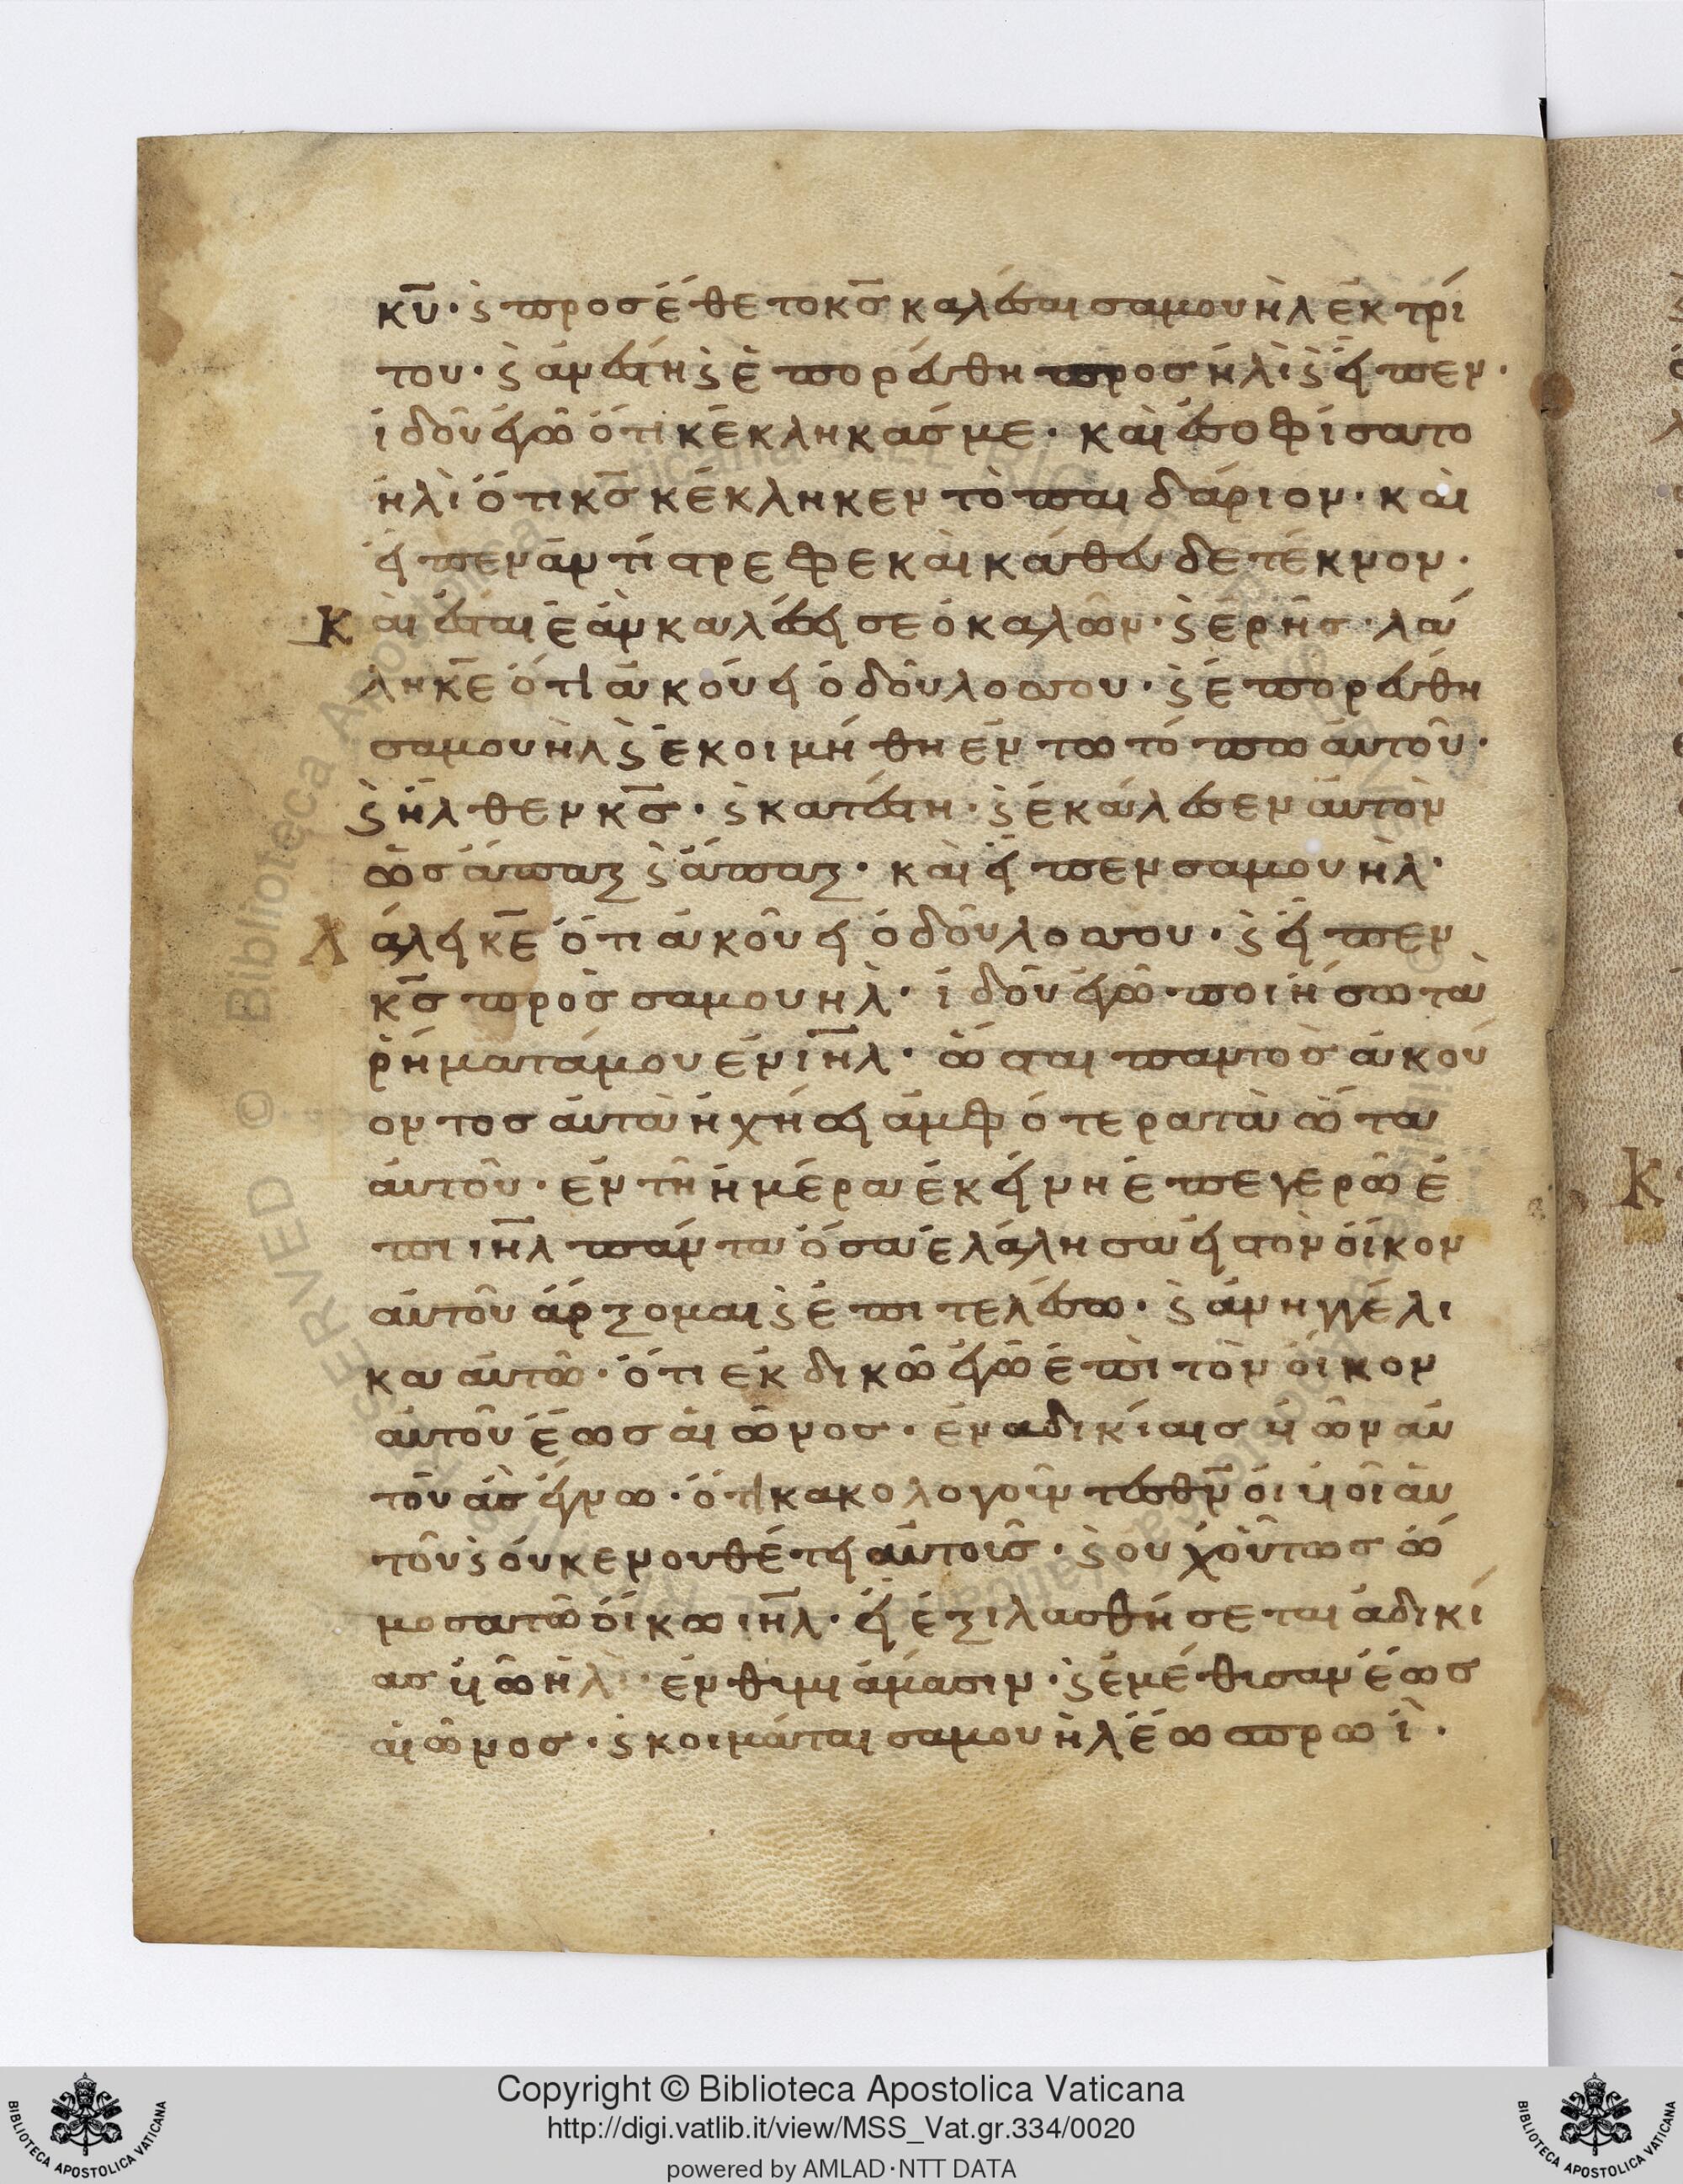 κ̅υ̅· ϛ̀ προσέθετο κ̅σ̅ καλέσαι σαμουὴλ ἐκ τρί
του· ϛ̀ ἀνέστη ϛ̀ ἐπορεύθη προσ ἠλὶ ϛ̀ εἶπεν·
ἰδοῦ ἐγῶ ὅτι κέκληκάσ με· καὶ ἐσοφίσατο
ἠλὶ ὅτι κ̅σ̅ κέκληκεν τὸ παιδάριον· καὶ
εἶπεν ἀντίστρεφε καὶ κάθευδε τέκνον·
Κὰι ἔσται ἐὰν καλέσει σε ὁ καλῶν· ϛ̀ ἐρῆσ· λά
λη κ̅ε̅ ὅτι ἀκούει ὁ δοῦλοσ σου· ϛ̀ ἐπορεύθη
σαμουὴλ ϛ̀ ἐκοιμήθη ἐν τω τόπω ἀυτοῦ·
ϛ̀ ἦλθεν κ̅σ̅· ϛ̀ κατέστη· ϛ̀ ἐκάλεσεν ἀυτὸν
ὡσ ἅπαξ ϛ̀ ἅπαξ· κὰι εἶπεν σαμουὴλ·
Λάλει κ̅ε̅ ὅτι ἀκοῦει ὁ δοῦλοσ σου· ϛ̀ εἶπεν
κ̅σ̅ πρὸσ σαμουηλ̀· ἰδοῦ ἐγῶ· ποιήσω τὰ
ῥήματά μου ἐν ι̅η̅λ̅· ὥσται παντὸσ ἀκού
οντοσ ἀυτὰ ἠχήσει ἀμφότερα τὰ ὦτα
ἀυτοῦ· ἐν τῆ ἡμέρα ἐκείνη ἐπεγερῶ ἐ
πι ι̅η̅λ̅ πάντα ὅσα ἐλάλησα εἰσ τὸν ὅικον
ἀυτοῦ ἄρξομαι ϛ̀ ἐπιτελέσω· ϛ̀ ἀνηγγέλι
κα ἀυτῶ· ὅτι ἐκδικῶ ἐγῶ ἐπὶ τὸν ὄικον
ἀυτοῦ ἕωσ ἀιῶνοσ· ἐν αδικίαισ υἱῶν ἀυ
τοῦ ἃσ ἔγνω· ὅτι κακολογοῦν τεσ θ̅ν̅ ὁι υἱοῖ ἀυ
τοῦ ϛ̀ ὀυκ ενουθέτει ἀυτοῖσ· ϛ̀ ουχ ὀῦτωσ ὤ
μοσα τῶ ὄικω ι̅η̅λ̅· εἰ ἐξιλασθήσεται ἀδικί
ασ υἱῶ ἠλὶ· ἐν θυμιάμασιν· ϛ̀ ἐν ἐ θυσιαν ἕωσ
ἀιῶνοσ· ϛ̀ κοιμάται σαμουὴλ ἕωσ πρωΐ·
Copyright © Biblioteca Apostolica Vaticana
http://digi.vatlib.it/view/MSS_Vat.gr.334/0020
powered by AMLAD·NTT DATA
BIBLIOTECA APOSTOLICA VATICANA
BIBLIOTECA APOSTOLICA VATICANA